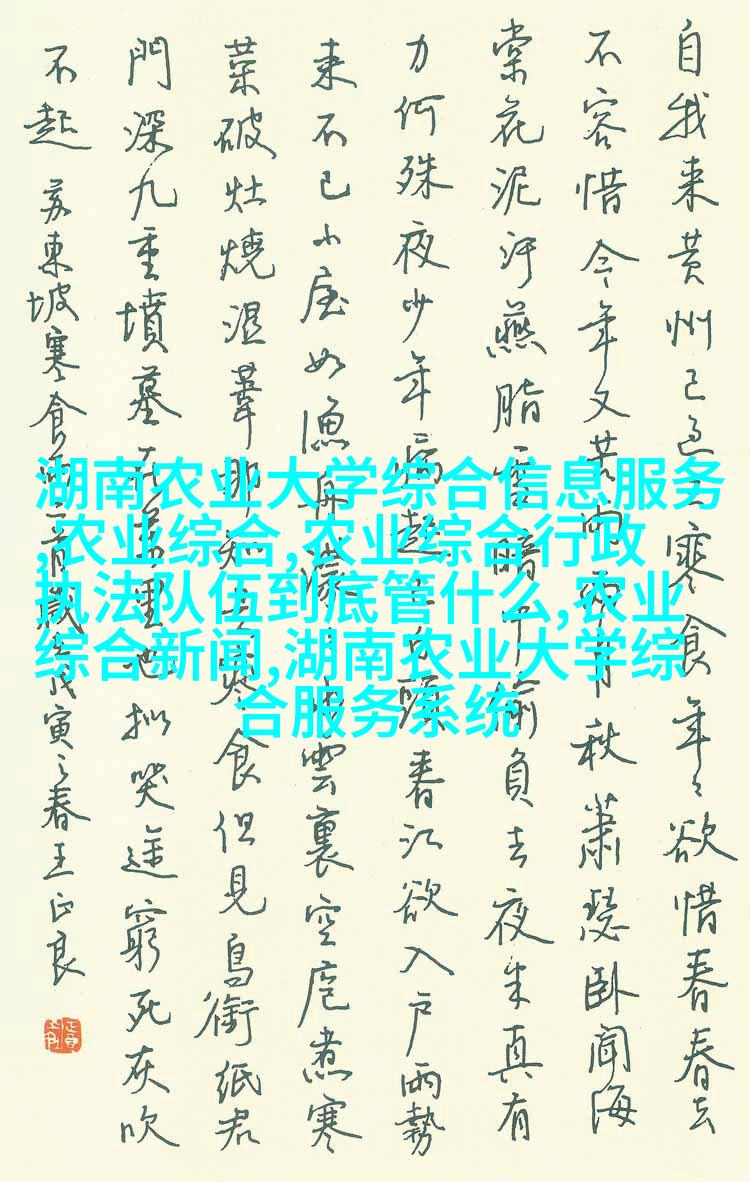 自我来黄州已过三寒食年々欲惜春春去
不容惜今年又苦雨两月秋萧瑟卧闻海
棠花泥污燕脂雪暗中偷負去夜半真有
力何殊夜少年病起頭春江欲入户雨勢
来不已小屋如渔舟濛水雲裏空庖煮寒
菜破灶燒湿葦那知是寒食但見烏銜纸君
門深九重墳墓在万里也拟哭途窮死灰吹
不起 苏東坡寒食诗二首歲戊寅之春王正良
湖南农业大学综合信息服务
,农业综合,农业综合行政
执法队伍到底管什么,农业
综合新闻,湖南农业大学综
合服务系统